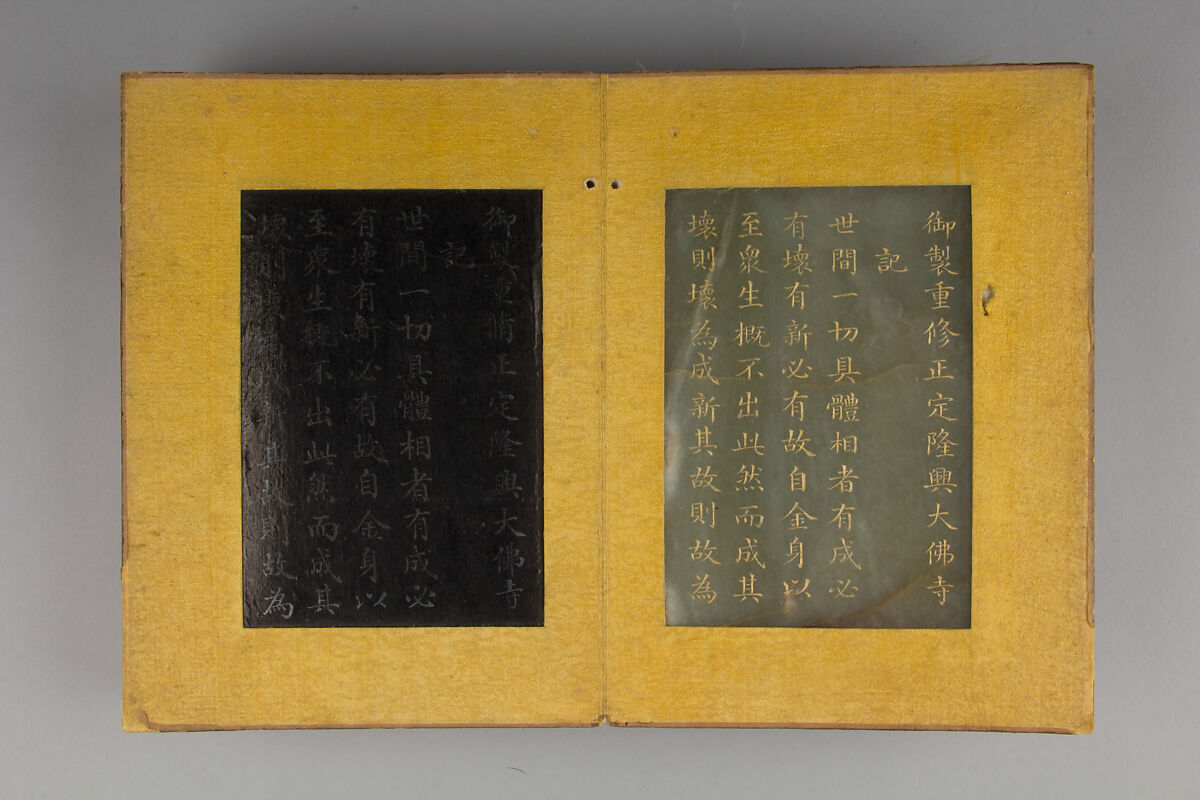 御製重修正定隆興大佛寺
記
世間一切具體相者有成必
有壞有新必有故自金身以
至衆生概不出此然而成其
壞則壞為成新其故則故為
御製重脩正定隆興大佛寺
記
世間一切具體相者有成必
有壞有新必有故自金身以
至衆生概不出此然而成其
壞則壞為成新其故則故為